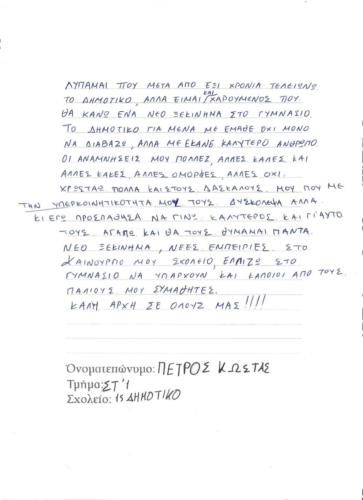 ΛΥΠΑΜΑΙ ΠΟΥ ΜΕΤΑ ΑΠΟ ΕΞΙ ΧΡΟΝΙΑ ΤΕΛΕΙΩΝΩ
ΤΟ ΔΗΜΟΤΙΚΟ, ΑΛΛΑ ΕΙΜΑΙ ΚΑΙ ΧΑΡΟΥΜΕΝΟΣ ΠΟΥ
ΘΑ ΚΑΝΩ ΕΝΑ ΝΕΟ ΞΕΚΙΝΗΜΑ ΣΤΟ ΓΥΜΝΑΣΙΟ.
ΤΟ ΔΗΜΟΤΙΚΟ ΓΙΑ ΜΕΝΑ ΜΕ ΕΜΑΘΕ ΟΧΙ ΜΟΝΟ
ΝΑ ΔΙΑΒΑΖΩ, ΑΛΛΑ ΜΕ ΕΚΑΝΕ ΚΑΛΥΤΕΡΟ ΑΝΘΡΩΠΟ.
ΟΙ ΑΝΑΜΝΗΣΕΙΣ ΜΟΥ ΠΟΛΛΕΣ, ΑΛΛΕΣ ΚΑΛΕΣ ΚΑΙ
ΑΛΛΕΣ ΚΑΚΕΣ, ΑΛΛΕΣ ΟΜΟΡΦΕΣ, ΑΛΛΕΣ ΟΧΙ.
ΧΡΩΣΤΑΩ ΠΟΛΛΑ ΚΑΙ ΣΤΟΥΣ ΔΑΣΚΑΛΟΥΣ ΜΟΥ ΠΟΥ ΜΕ
ΤΗΝ ΥΠΕΡΚΟΙΝΗΤΙΚΟΤΗΤΑ ΜΟΥ ΤΟΥΣ ΔΥΣΚΟΛΕΨΑ ΑΛΛΑ
ΚΙ ΕΓΩ ΠΡΟΣΠΑΘΗΣΑ ΝΑ ΓΙΝΩ ΚΑΛΥΤΕΡΟΣ ΚΑΙ ΓΙ'ΑΥΤΟ
ΤΟΥΣ ΑΓΑΠΩ ΚΑΙ ΘΑ ΤΟΥΣ ΘΥΜΑΜΑΙ ΠΑΝΤΑ.
ΝΕΟ ΞΕΚΙΝΗΜΑ, ΝΕΕΣ ΕΜΠΕΙΡΙΕΣ. ΣΤΟ
ΚΑΙΝΟΥΡΙΟ ΜΟΥ ΣΧΟΛΕΙΟ, ΕΛΠΙΖΩ ΣΤΟ
ΓΥΜΝΑΣΙΟ ΝΑ ΥΠΑΡΧΟΥΝ ΚΑΙ ΚΑΠΟΙΟΙ ΑΠΟ ΤΟΥΣ
ΠΑΛΙΟΥΣ ΜΟΥ ΣΥΜΑΘΗΤΕΣ.
ΚΑΛΗ ΑΡΧΗ ΣΕ ΟΛΟΥΣ ΜΑΣ!!!!
Ὀνοματεπώνυμο: ΠΕΤΡΟΣ ΚΩΣΤΑΣ
Τμήμα: ΣΤ'1
Σχολείο: 15 ΔΗΜΟΤΙΚΟ